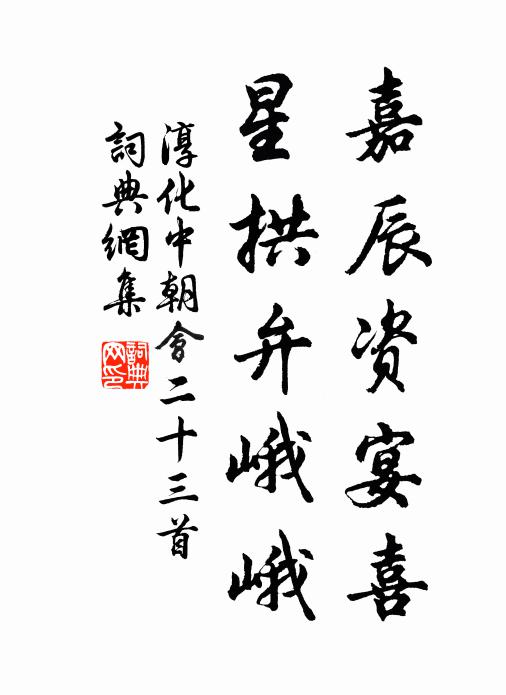 嘉辰资宴喜
星拱弁峨峨
淳化中朝會二十三首
詞典網集
詞典网印